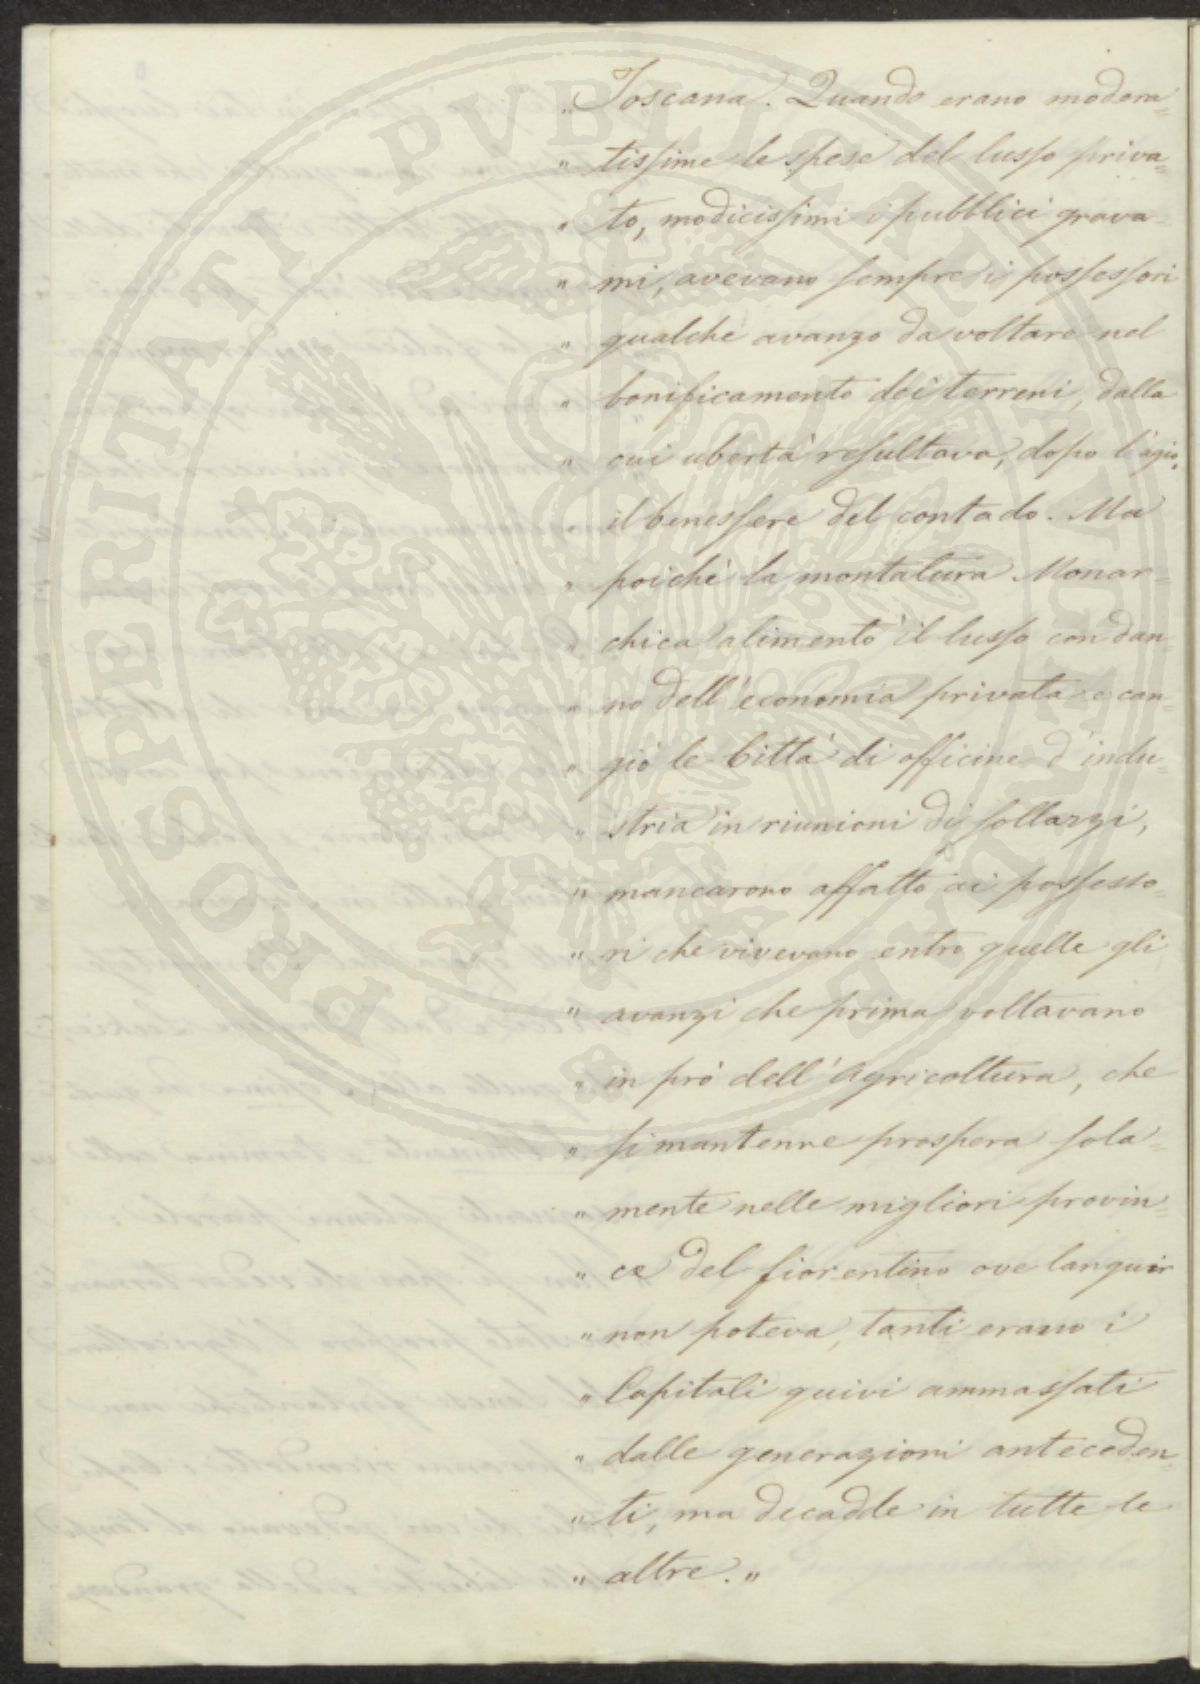 „ Toscana. Quando erano modera=
„ tissime le spese del lusso priva=
„ to, modicissimi i pubblici grava=
„ mi, avevano sempre i possessori
„ qualche avanzo da voltare nel
„ bonificamento dei terreni, dalla
„ cui ubertà resultava, dopo l'agio,
„ il benessere del contado. Ma
„ poichè la montatura Monar=
„ chica alimentò il lusso con dan=
„ no dell'economia privata e can=
„ giò le Città di officine d'indu=
„ stria in riunioni di sollazzi,
„ mancarono affatto ai possesso=
„ ri che vivevano entro quelle gli
„ avanzi che prima voltavano
„ in prò dell'Agricoltura, che
„ si mantenne prospera sola=
„ mente nelle migliori provin=
„ ce del fiorentino ove languir
„ non poteva, tanti erano i
„ Capitali quivi ammassati
„ dalle generazioni anteceden=
„ ti, ma decadde in tutte le
„ altre. „
PROSPERITATI PVBLICAE AVGENDAE